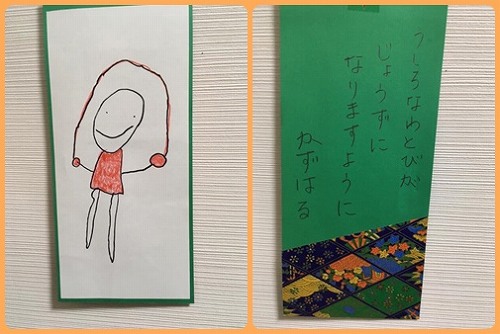 うしろなわとびが
じょうずに
なりますように
かずはる